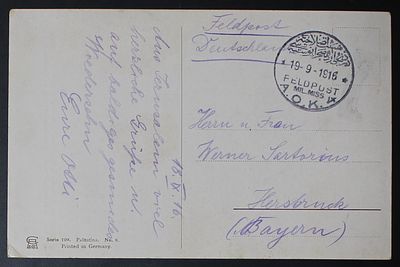 Feldpost
Deutschland
19-9-1916
FELDPOST
MIL. MISS
A.O.K.
18.IX.16.
Aus Jerusalem viel
herzliche Grüße u.
auf baldiges gesundes
Wiedersehn
Eure
Herrn u. Frau
Werner Sartorius
Hersbruck
(Bayern)
Serie 109. Palästina. No.
Printed in Germany.